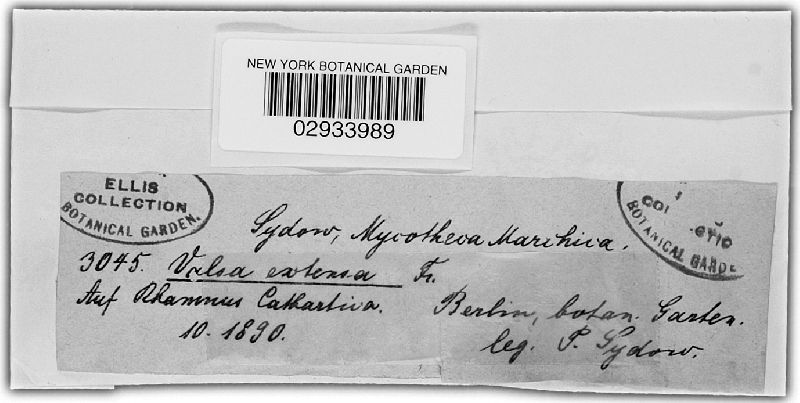 NEW YORK BOTANICAL GARDEN
02933989
ELLIS
COLLECTION
BOTANICAL GARDEN.
BOTANICAL GARDE
Sydow, Mycotheca Marchica.
3045. Valsa extensa Fr.
Auf Rhamnus Cathartica.
Berlin, botan. Garten.
10. 1890.
leg. P. Sydow.